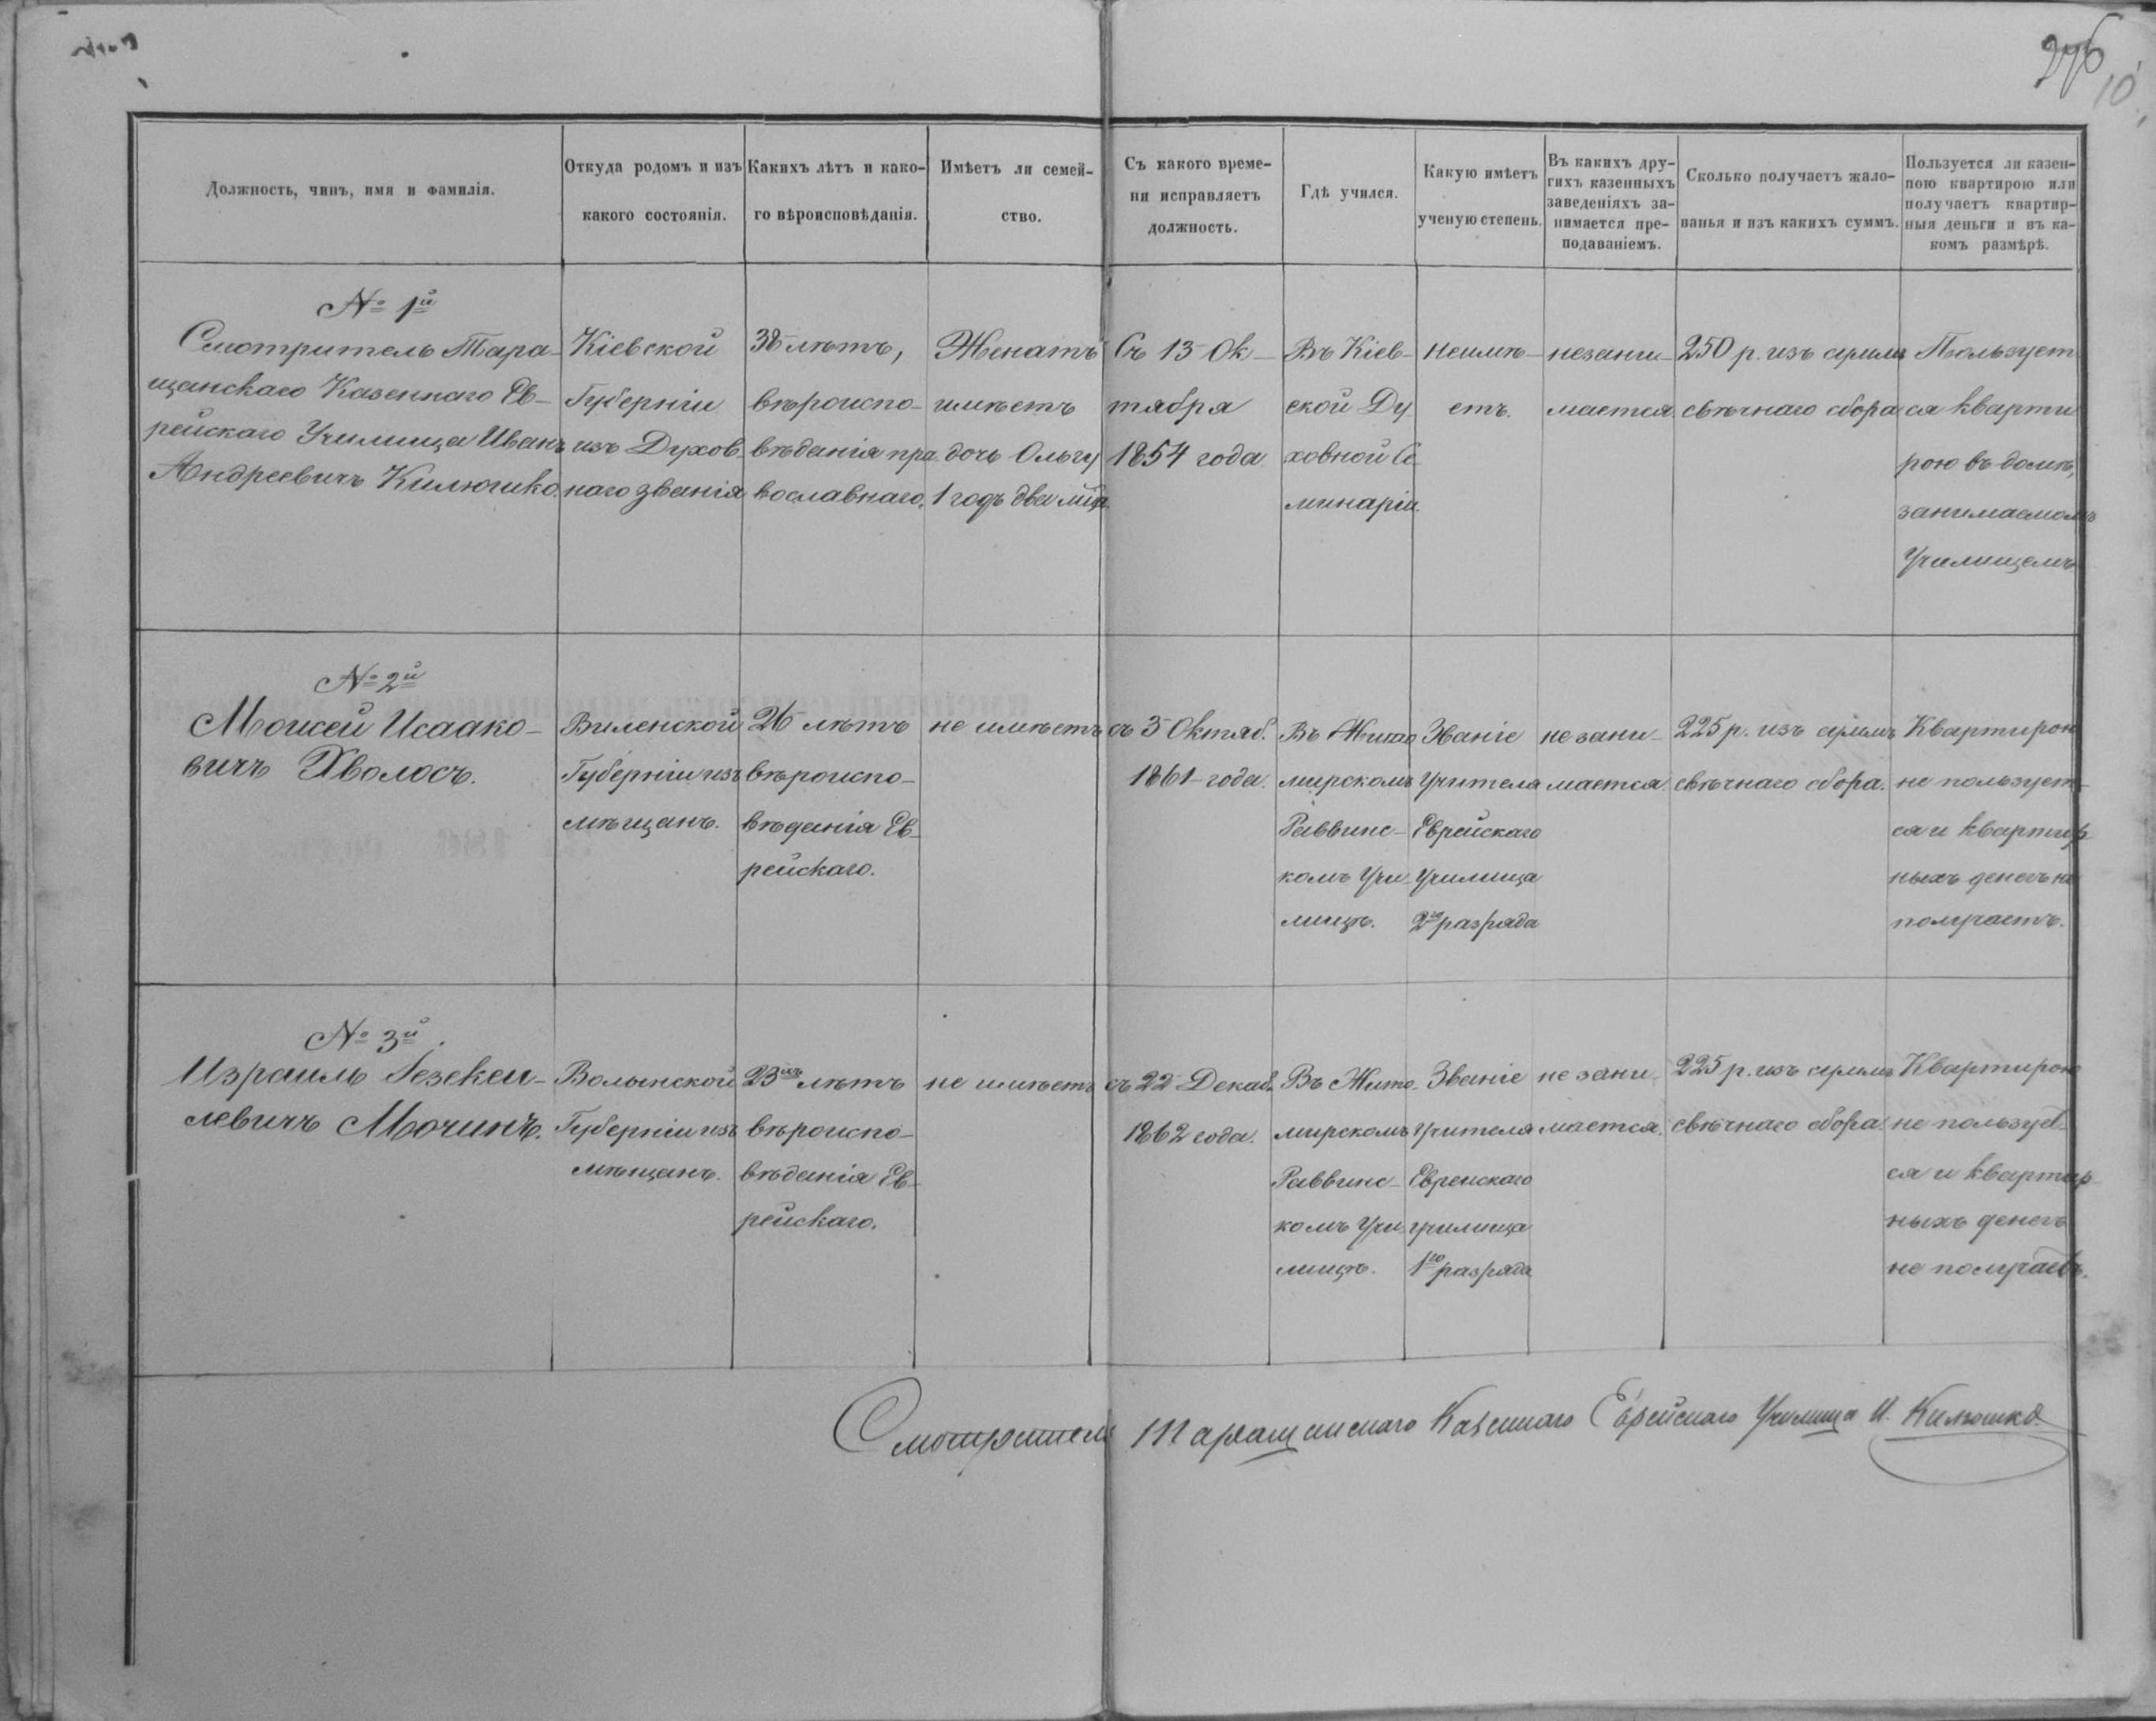 276
10
Должность, чинъ, имя и фамилія.
Откуда родомъ и изъ
какого состоянія.
Какихъ лѣтъ и како-
го вѣроисповѣданія.
Имѣетъ ли семей-
ство.
Съ какого време-
ни исправляетъ
должность.
Гдѣ учился.
Какую имѣетъ
ученую степень.
Въ какихъ дру-
гихъ казенныхъ
заведеніяхъ за-
нимается пре-
подаваніемъ.
Сколько получаетъ жало-
ванья и изъ какихъ суммъ.
Пользуется ли казен-
ною квартирою или
получаетъ квартир-
ныя деньги и въ ка-
комъ размѣрѣ.
№ 1й
Смотритель Тара-
щанскаго Казеннаго Ев-
рейскаго Училища Иванъ
Андреевичъ Килюшко.
Кіевской
Губерніи
изъ Духов-
наго званія
38 лѣтъ,
вѣроиспо-
вѣданія пра
вославнаго.
Женатъ
имѣетъ
дочь Ольгу
1 годъ два мѣц.
Съ 13 Ок-
тября
1854 года
Въ Кіев-
ской Ду
ховной Се
минаріи.
неимѣ-
етъ.
незани-
мается
250 р. изъ суммъ
свѣчнаго сбора
Пользует
ся кварти
рою въ домѣ,
занимаемомъ
Училищемъ.
№ 2й
Моисей Исаако-
вичъ Хволосъ.
Виленской
Губерніи изъ
мѣщанъ.
26 лѣтъ
вѣроиспо-
вѣданія Ев-
рейскаго.
не имѣетъ
съ 3 Октяб.
1861 года.
Въ Жито
мирскомъ
Раввинс-
комъ Учи-
лищѣ.
Званіе
Учителя
Еврейскаго
Училища
2го разряда
не зани-
мается.
225 р. изъ суммъ
свѣчнаго сбора.
Квартирою
не пользует-
ся и квартир-
ныхъ денегъ не
получаетъ.
№ 3й
Израиль Іезекеи-
левичъ Мочинъ.
Волынской
Губерніи изъ
мѣщанъ.
23хъ лѣтъ
вѣроиспо-
вѣданія Ев-
рейскаго.
не имѣетъ
съ 22 Декаб.
1862 года.
Въ Жито-
мирскомъ
Раввинс-
комъ Учи-
лищѣ.
Званіе
Учителя
Еврейскаго
училища
1го разряда
не зани-
мается.
225 р. изъ суммъ
свѣчнаго сбора.
Квартирою
не пользует-
ся и квартир-
ныхъ денегъ
не получаетъ.
Смотритель Таращанскаго Казеннаго Еврейскаго Училища И. Килюшко.